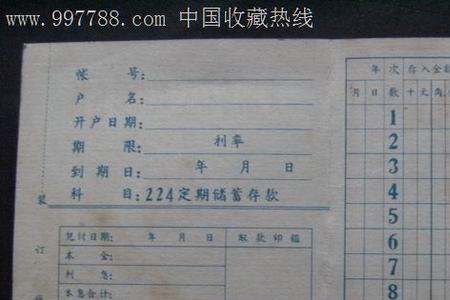 www.997788.com 中国收藏热线
帐 号:
户 名:
开户日期:
期 限: 利率
到 期 日: 年 月 日
科 目: 224定期储蓄存款
装
订
兑付日期: 年 月 日 取款印鑑
本 金:
利 息:
本息合计:
年 次 存入金额
月 日 数 十 元 角
1
2
3
4
5
6
7
8